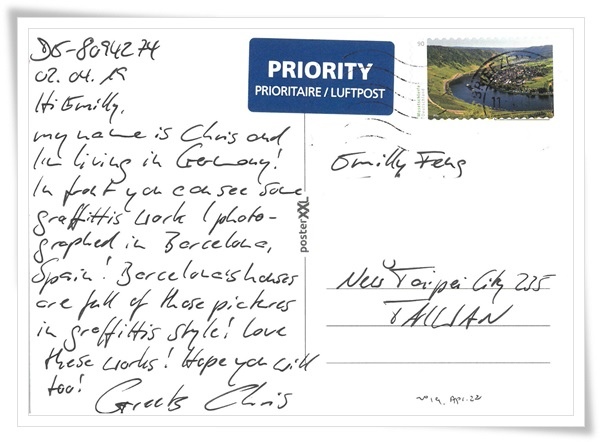 DE-8094274
02.04.19
Hi Emilly,
my name is Chris and
I'm living in Germany!
In front you can see some
graffittis work I photo-
graphed in Barcelona,
Spain! Barcelonas houses
are full of those pictures
in graffittis style! I love
these works! Hope you will
too!
Greets Chris
PRIORITY
PRIORITAIRE / LUFTPOST
90
posterXXL
Emilly Feng
New Taipei City 235
TAIWAN
19. Apr. 22